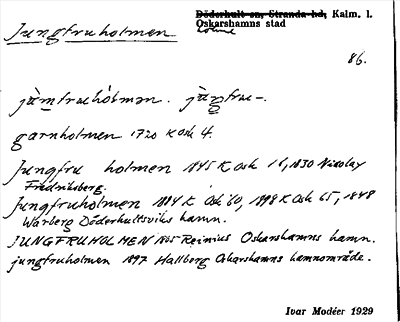 Jungfruholmen Döderhult sn, Stranda hd, Kalm. l.
Oskarshamns stad
holme
86.
jùmfruhólmən. jùŋfru-.
garnholmen 1720 K Osk 4.
Jungfru holmen 1845 K Osk 16, 1830 Nikolay
Fredriksberg.
Jungfruholmen 1884 K Osk 60, 1898 K Osk 65, 1848
Warberg Döderhultsviks hamn.
JUNGFRUHOLMEN 1865 Reinius Oskarshamns hamn.
jungfruholmen 1897 Hallberg Oskarshamns hamnområde.
Ivar Modéer 1929